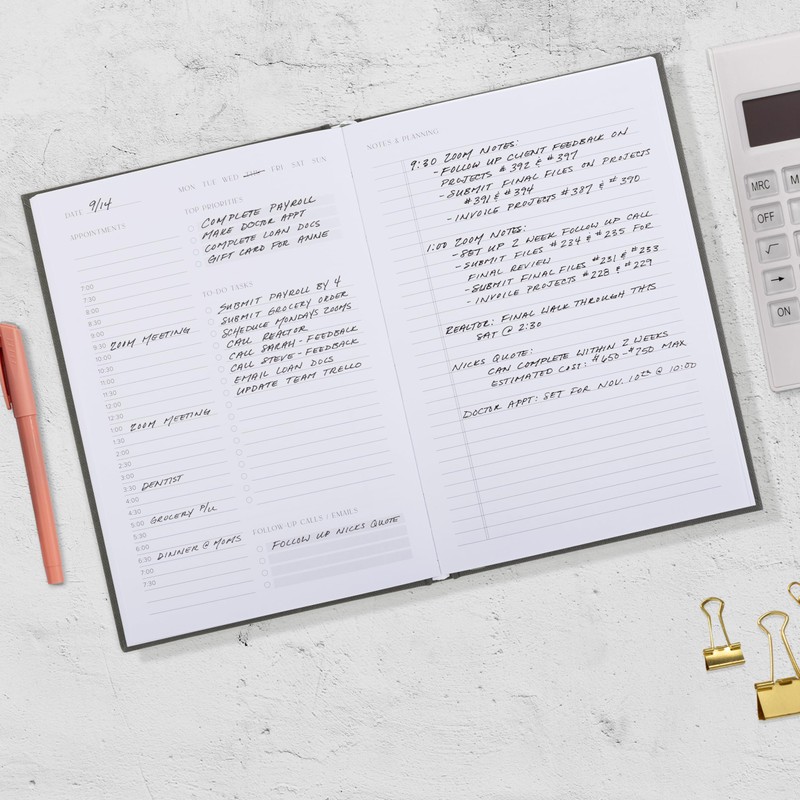 DATE 9/14
MON TUE WED THU FRI SAT SUN
APPOINTMENTS
7:00
7:30
8:00
8:30
9:00
9:30 ZOOM MEETING
10:00
10:30
11:00
11:30
12:00
12:30
1:00 ZOOM MEETING
1:30
2:00
2:30
3:00
3:30 DENTIST
4:00
4:30
5:00 GROCERY P/U
5:30
6:00
6:30 DINNER @ MOMS
7:00
7:30
TOP PRIORITIES
COMPLETE PAYROLL
MAKE DOCTOR APPT
COMPLETE LOAN DOCS
GIFT CARD FOR ANNE
TO-DO TASKS
SUBMIT PAYROLL BY 4
SUBMIT GROCERY ORDER
SCHEDULE MONDAYS ZOOMS
CALL REALTOR
CALL SARAH - FEEDBACK
CALL STEVE - FEEDBACK
EMAIL LOAN DOCS
UPDATE TEAM TRELLO
FOLLOW-UP CALLS | EMAILS
FOLLOW UP NICKS QUOTE
NOTES & PLANNING
9:30 ZOOM NOTES:
- FOLLOW UP CLIENT FEEDBACK ON
PROJECTS #392 & #397
- SUBMIT FINAL FILES ON PROJECTS
#391 & #394
- INVOICE PROJECTS #387 & #390
1:00 ZOOM NOTES:
- SET UP 2 WEEK FOLLOW UP CALL
- SUBMIT FILES #234 & #235 FOR
FINAL REVIEW
- SUBMIT FINAL FILES #231 & #233
- INVOICE PROJECTS #228 & #229
REALTOR: FINAL WALK THROUGH THIS
SAT @ 2:30
NICKS QUOTE:
CAN COMPLETE WITHIN 2 WEEKS
ESTIMATED COST: $650-$750 MAX
DOCTOR APPT: SET FOR NOV. 10TH @ 10:00
MRC
OFF
√
→
ON